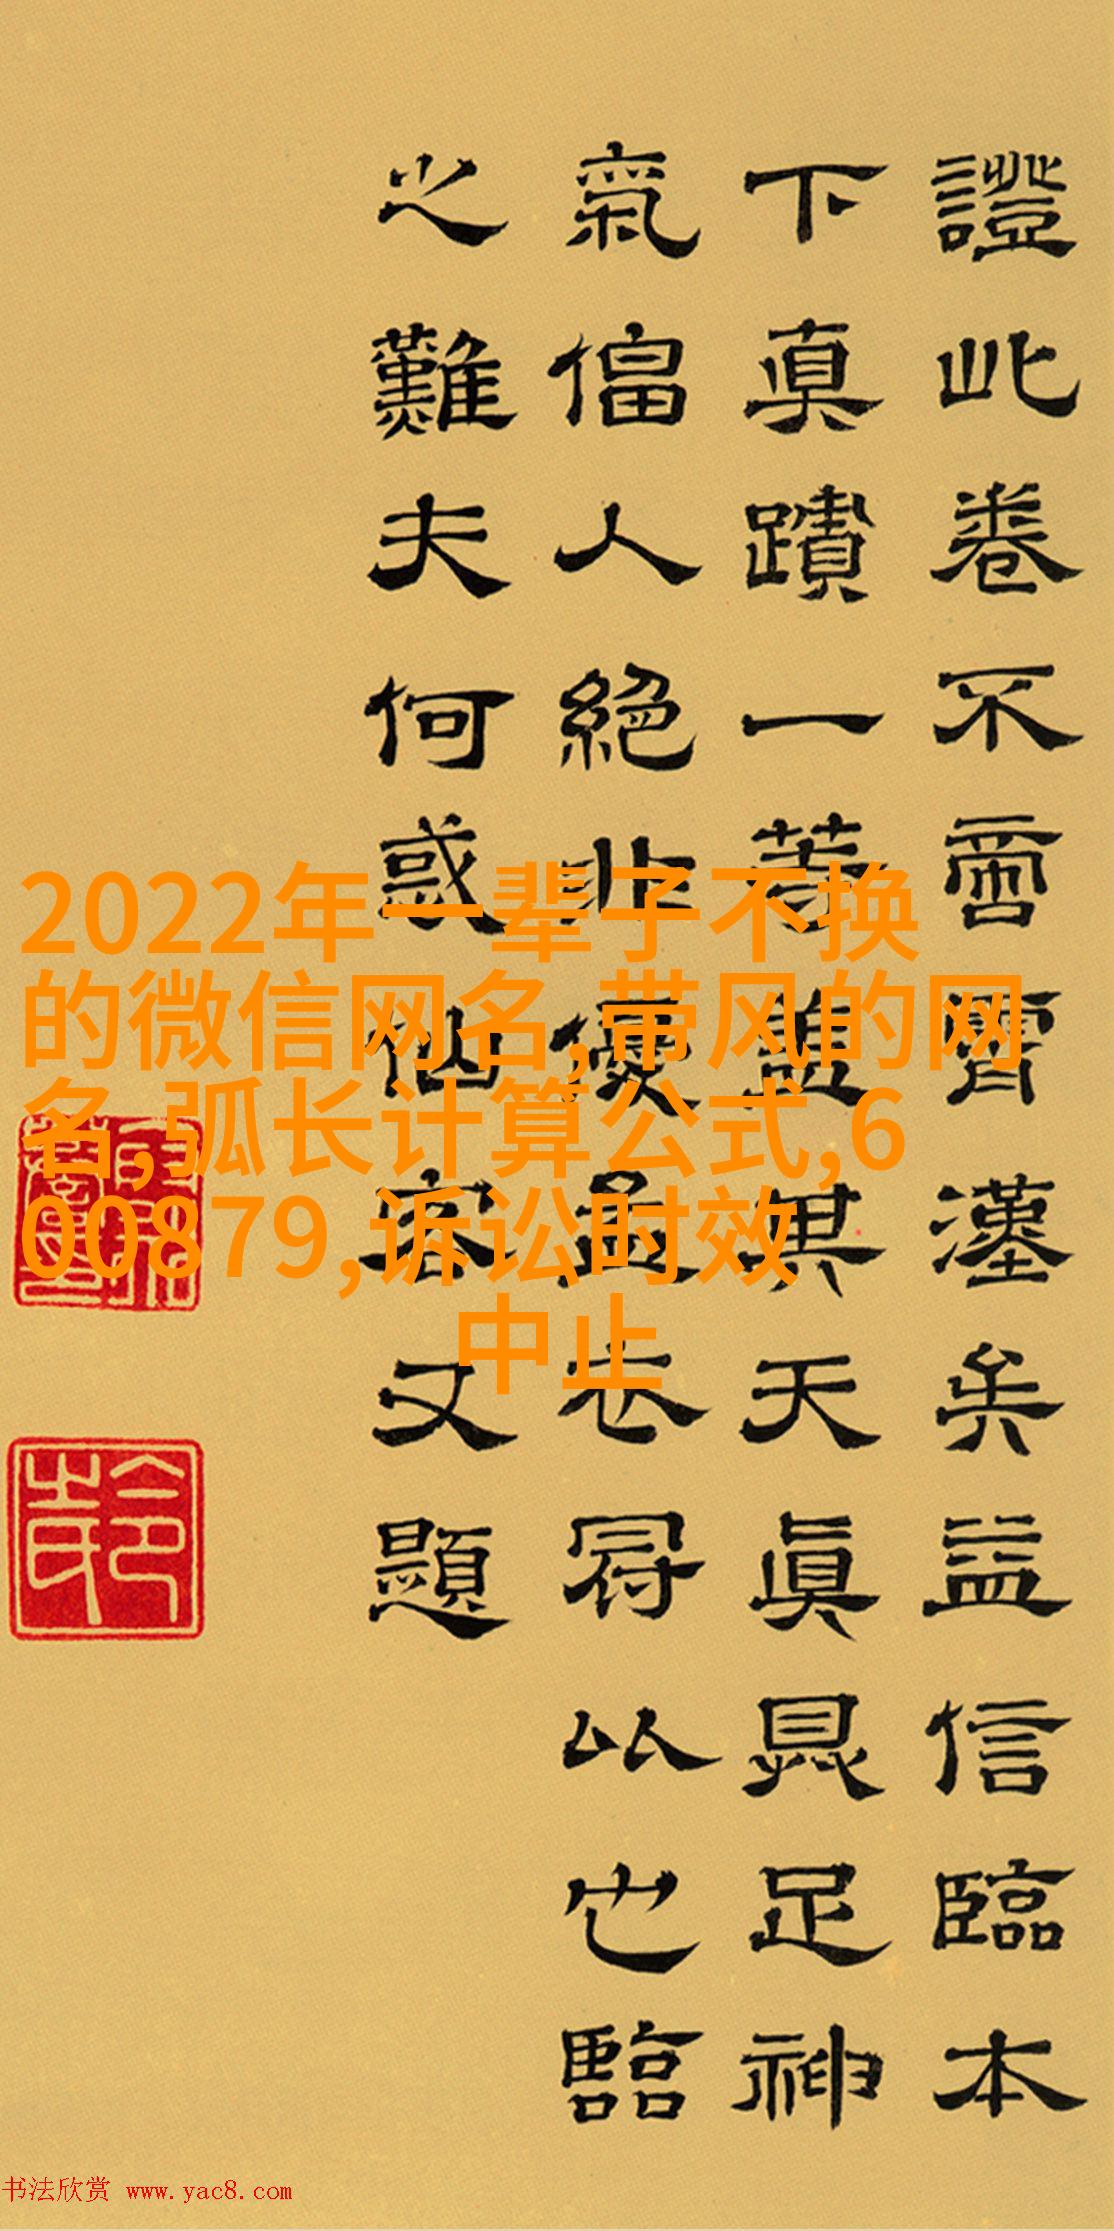 2022年一辈子不换
的微信网名,带风的网
名,弧长计算公式,6
00879,诉讼时效
中止
證此卷不啻霄漢矣益信臨本
下真蹟一等蓋其天真具足神
氣偪人絕非優孟衣冠以也臨
之難夫何惑仙客又題
书法欣赏 www.yac8.com